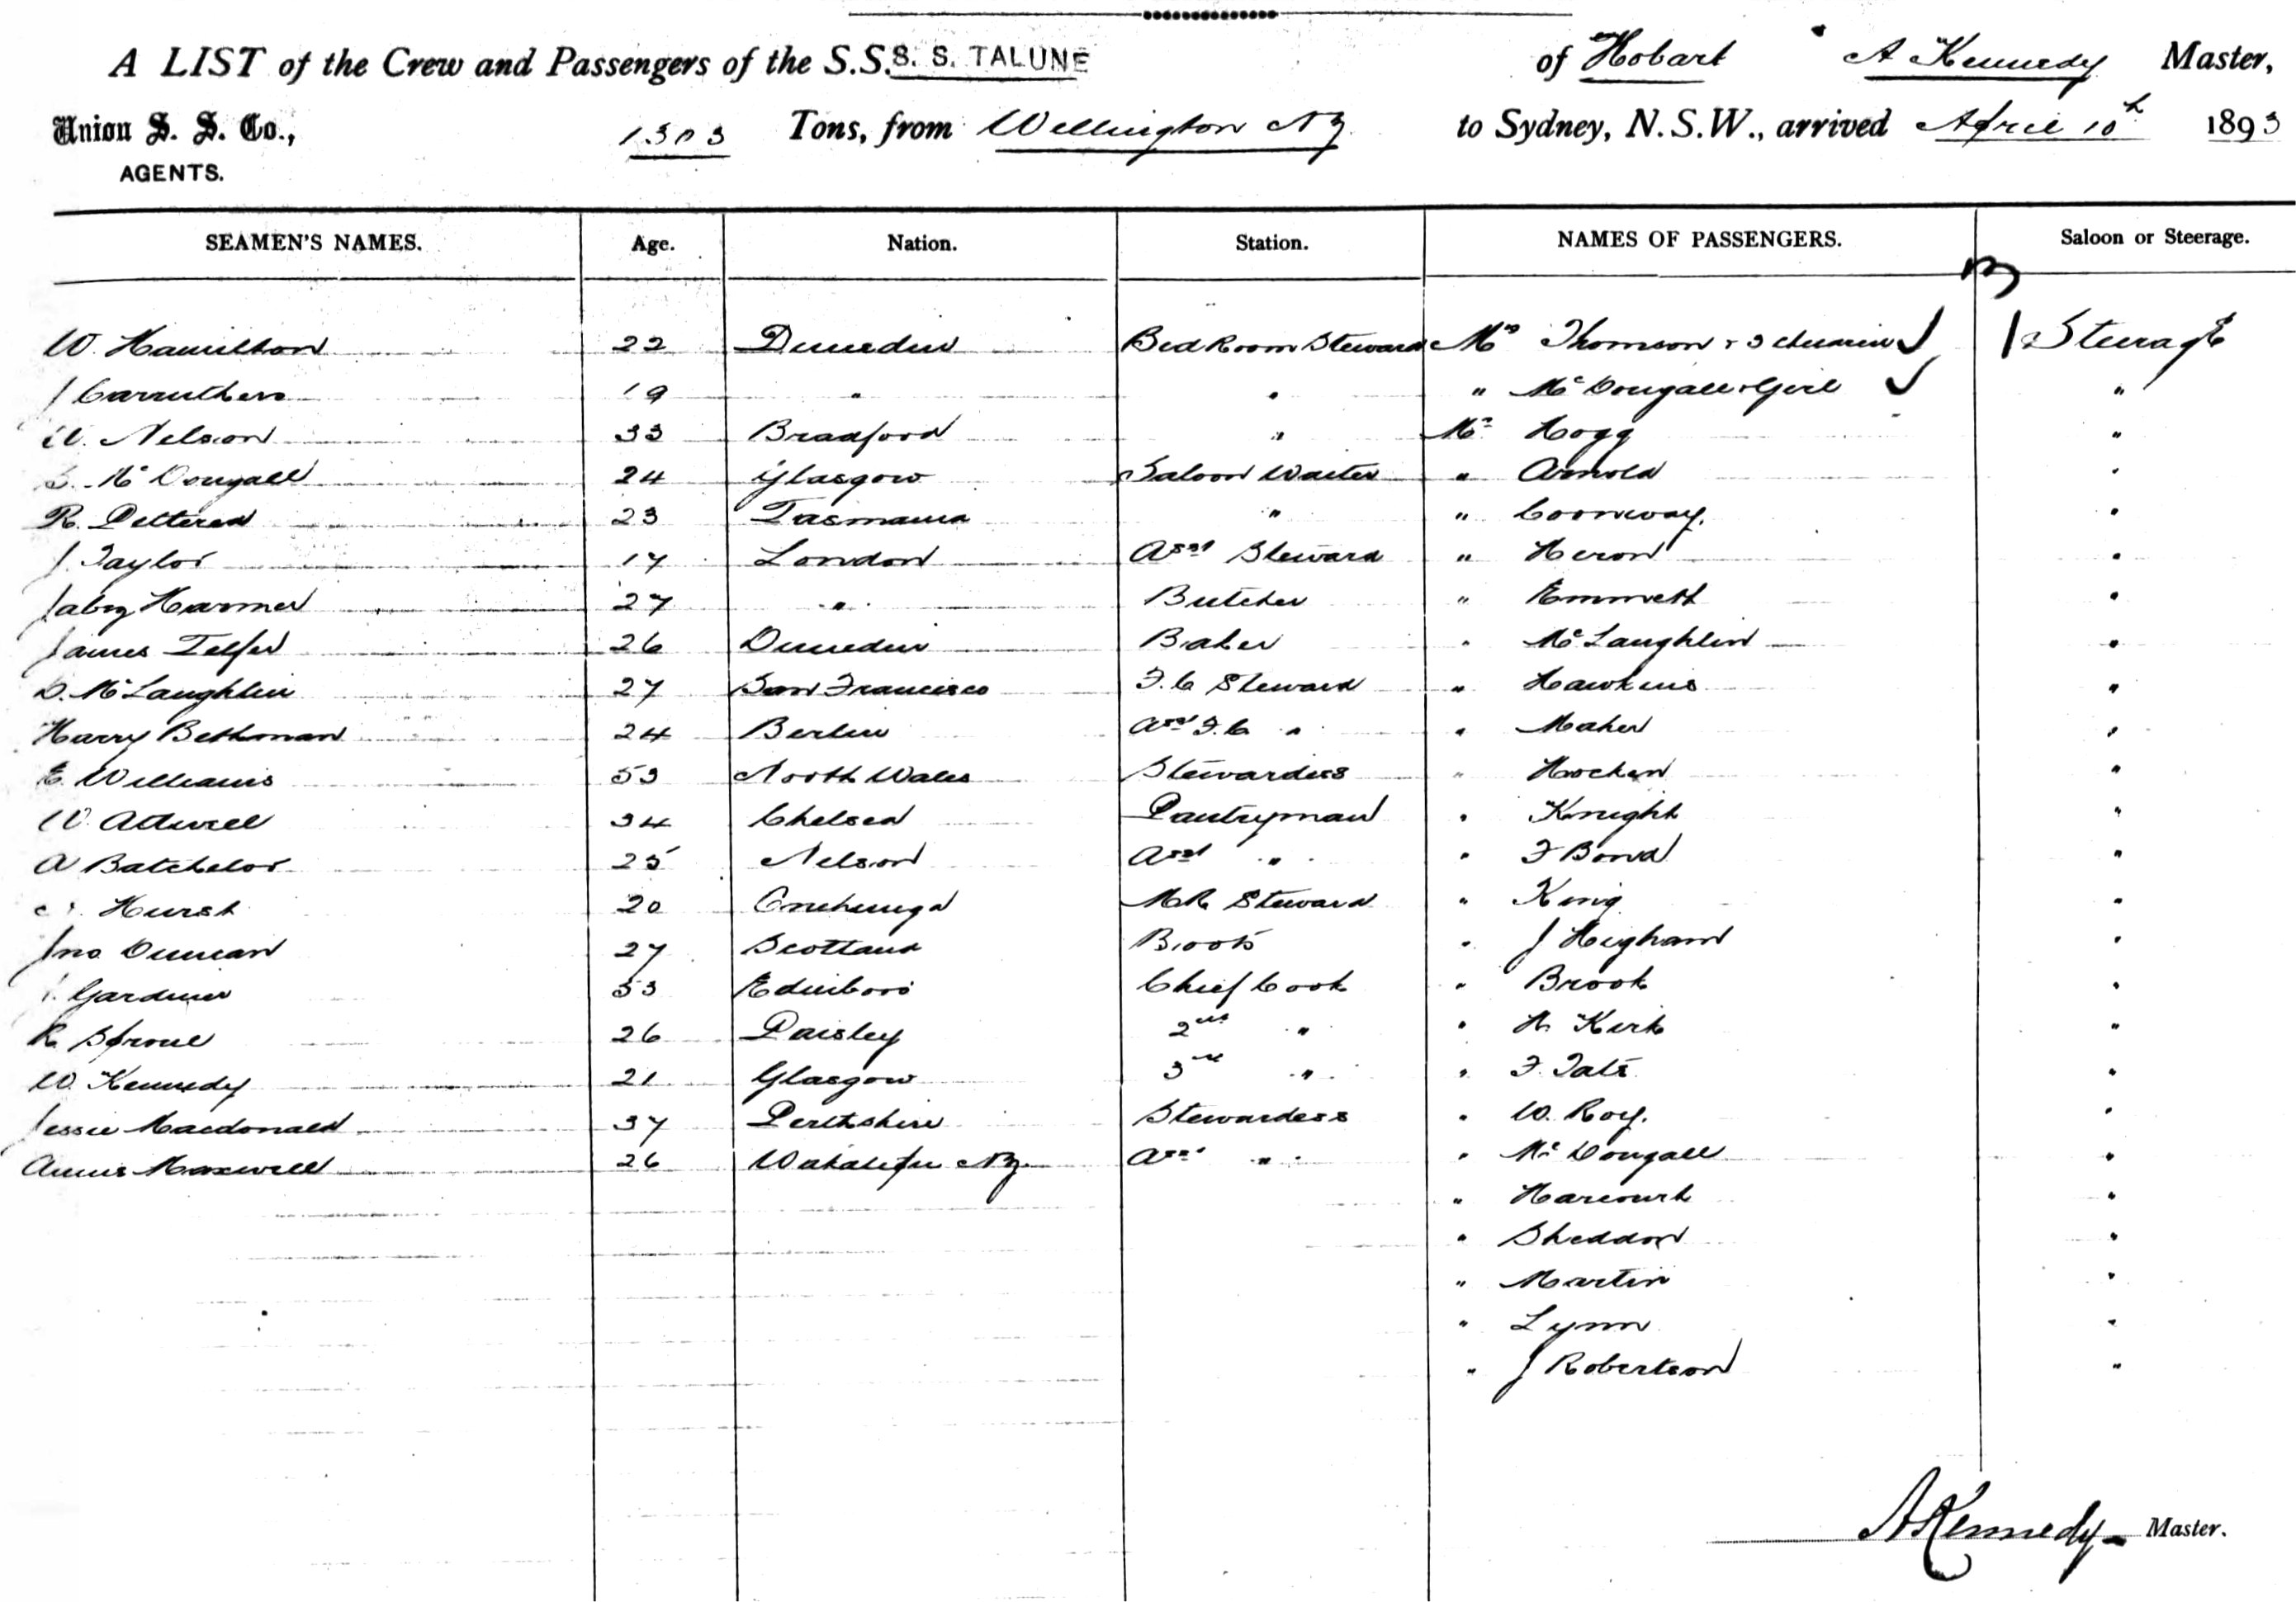 A LIST of the Crew and Passengers of the S.S. S. S. TALUNE of Hobart A Kennedy Master,
Union S. S. Co., 1303 Tons, from Wellington NZ to Sydney, N.S.W., arrived April 10th 1893
AGENTS.
SEAMEN'S NAMES. Age. Nation. Station. NAMES OF PASSENGERS. Saloon or Steerage.
W. Hamilton 22 Dunedin Bed Room Steward Mrs Thomson + 3 children 1 Steerage
J Carruthers 19 " " " McDougall & Girl "
W. Nelson 33 Bradford " Mr Hogg "
McDougall 24 Glasgow Saloon Waiter " Arnold "
R. Pettered 23 Tasmania " " Coonway. "
J. Taylor 17 London Asst Steward " Heron "
Jabez Harmer 27 " Butcher " Emmett "
James Telfer 26 Dunedin Baker " McLaughlin "
D. McLaughlin 27 San Francisco F.C Steward " Hawkins "
Harry Bethman 24 Berlin Asst F.C " " Maher "
E. Williams 53 North Wales Stewardess " Hocken "
W. Attwell 34 Chelsea Pantryman " Knight "
A Batchelor 25 Nelson Asst " " F Bond "
Hurst 20 Onehunga M.R. Steward " King "
Jno Duncan 27 Scotland Boots " J Higham "
Gardiner 53 Edinboro Chief Cook " Brook "
R Sproul 26 Paisley 2nd " " H. Kirk "
W. Kennedy 21 Glasgow 3rd " " F. Tate "
Jessie Macdonald 37 Perthshire Stewardess " W. Roy. "
Annie Maxwell 26 Wakatipu NZ Asst " " McDougall "
" Harcourt "
" Sheddon "
" Martin "
" Lynn "
" J Robertson "
A Kennedy Master.